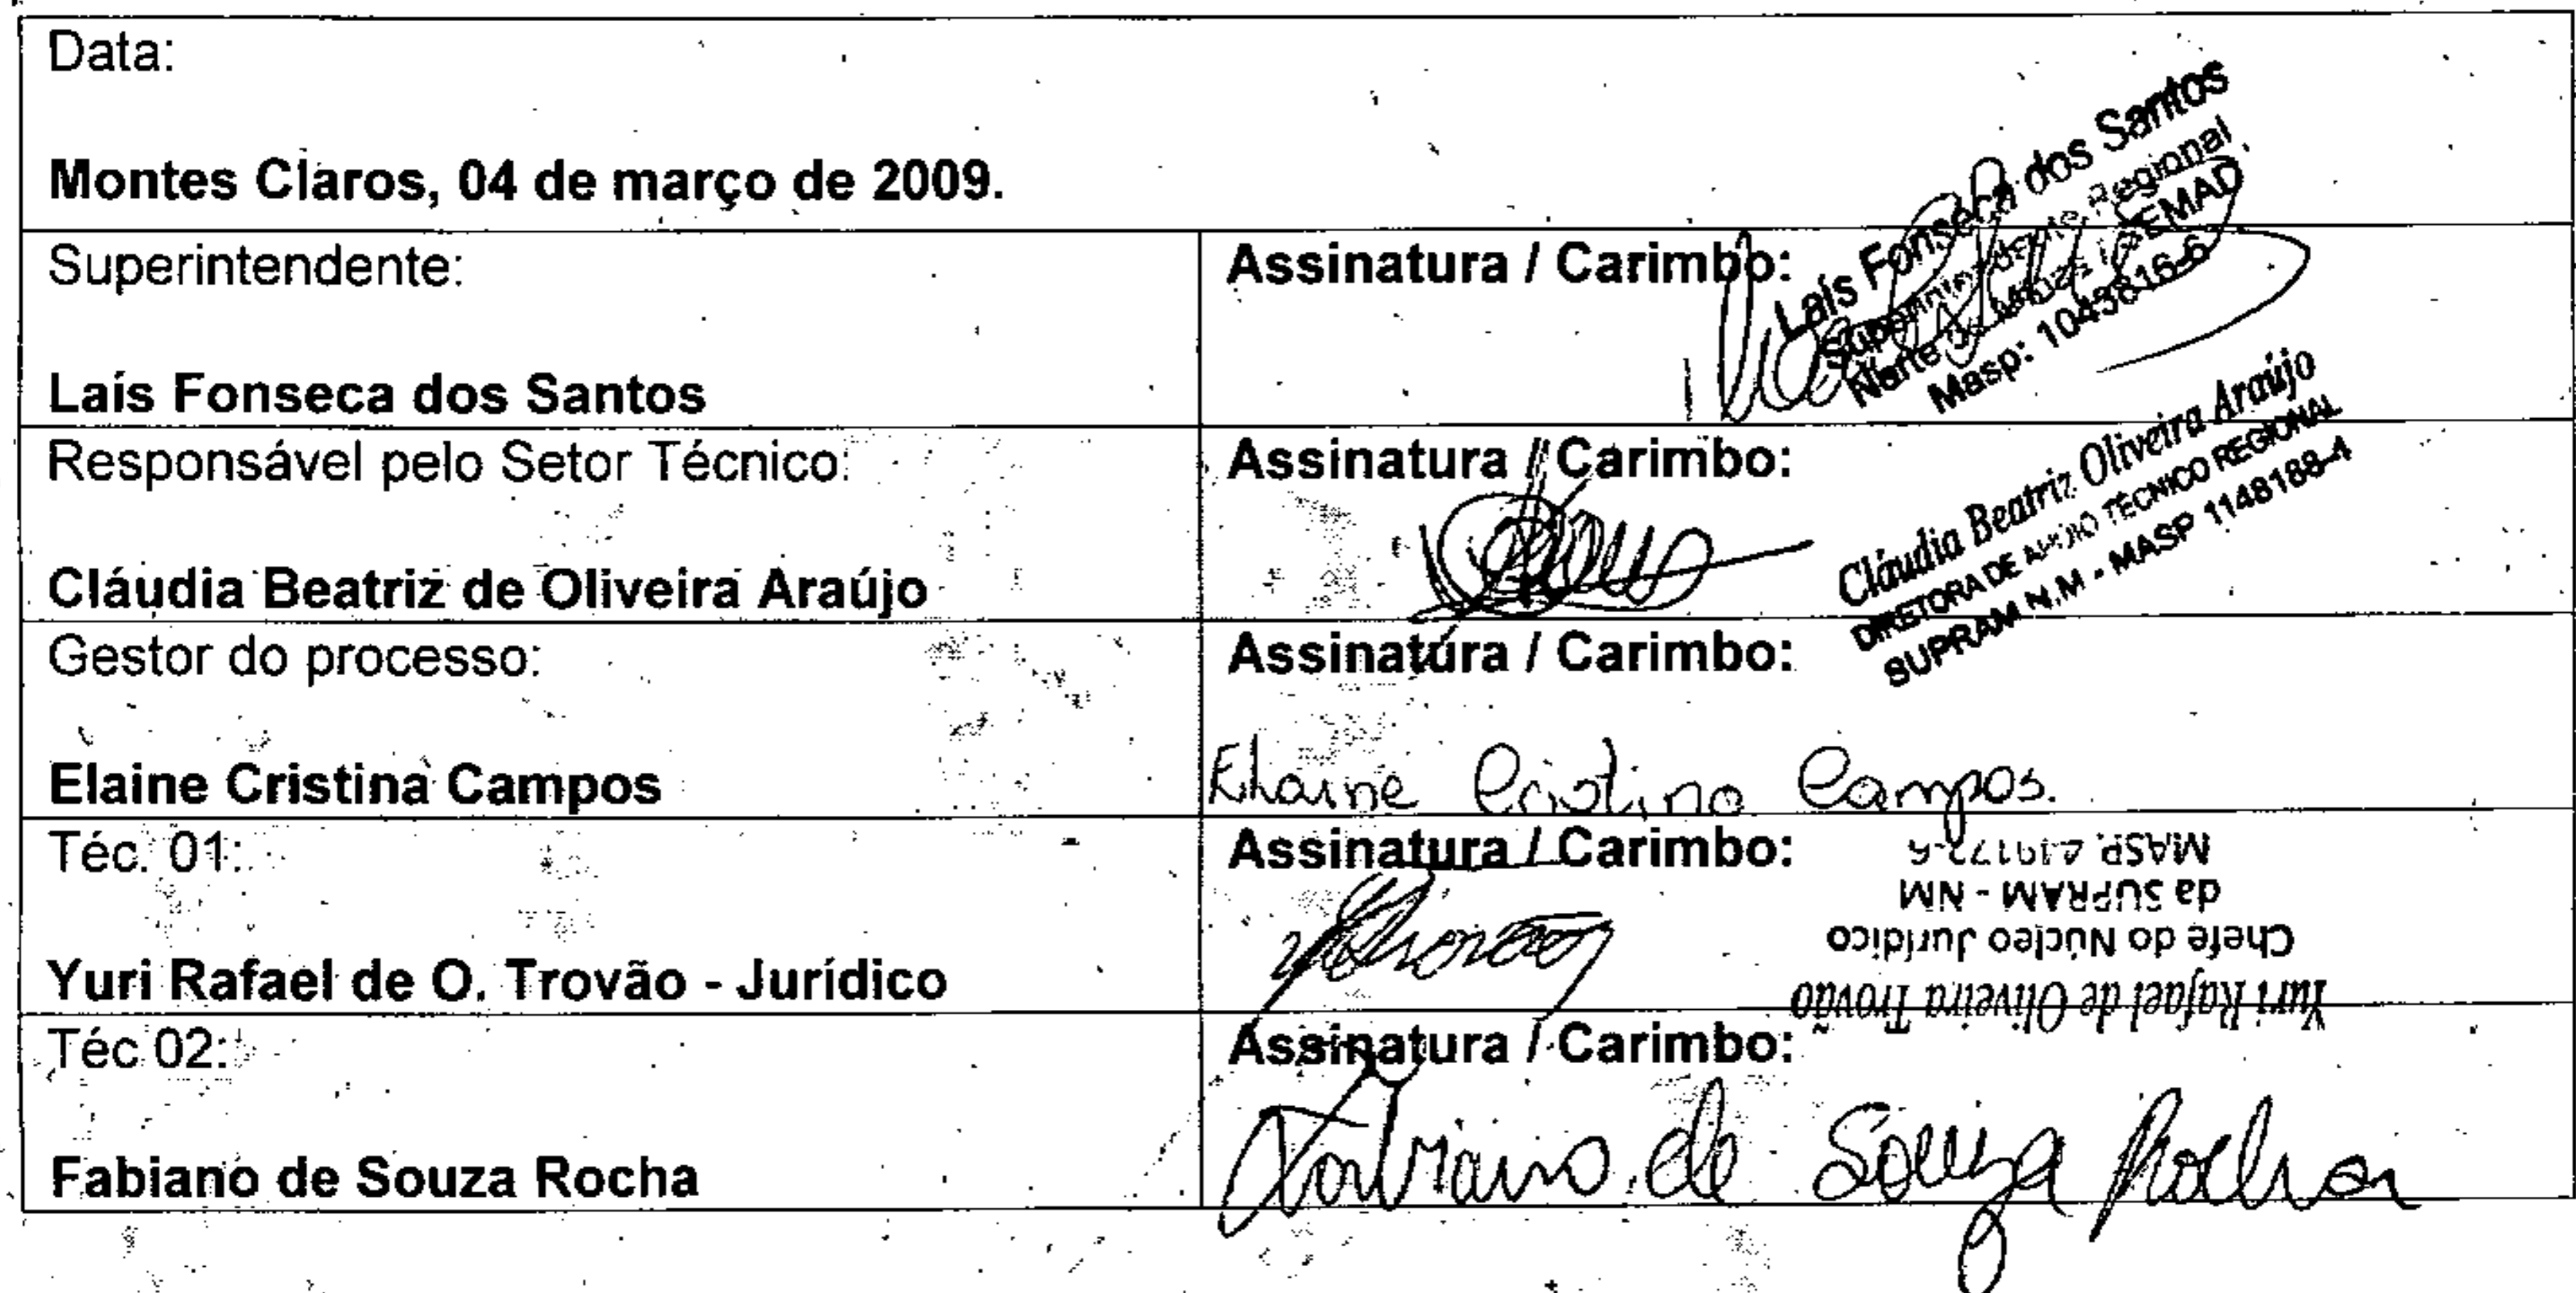 Data:
Montes Claros, 04 de março de 2009.
Superintendente:
Laís Fonseca dos Santos
Assinatura / Carimbo:
Laís Fonseca dos Santos
Superintendente Regional
Norte de Minas / SEMAD
Masp: 1043816-6
Responsável pelo Setor Técnico:
Cláudia Beatriz de Oliveira Araújo
Assinatura / Carimbo:
Cláudia Beatriz Oliveira Araújo
DIRETORA DE APOIO TÉCNICO REGIONAL
SUPRAM N.M - MASP 1148188-4
Gestor do processo:
Elaine Cristina Campos
Assinatura / Carimbo:
Elaine Cristina Campos.
Téc. 01:
Yuri Rafael de O. Trovão - Jurídico
Assinatura / Carimbo:
Yuri Rafael de Oliveira Trovão
Chefe do Núcleo Jurídico
da SUPRAM - NM
MASP.
Téc 02:
Fabiano de Souza Rocha
Assinatura / Carimbo:
Fabiano de Souza Rocha